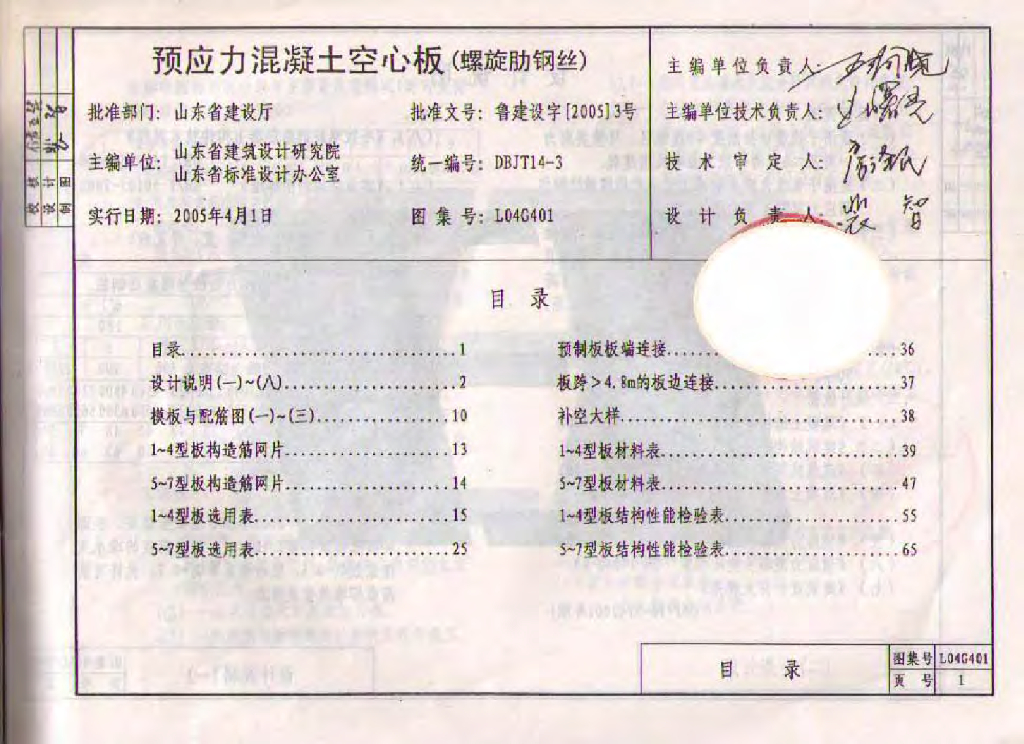 预应力混凝土空心板(螺旋肋钢丝)
批准部门: 山东省建设厅 批准文号: 鲁建设字[2005]3号
主编单位: 山东省建筑设计研究院
山东省标准设计办公室
统一编号: DBJT14-3
实行日期: 2005年4月1日 图集号: L04G401
主编单位负责人:
主编单位技术负责人:
技术审定人:
设计负责人: 裴智
校核
设计
制图
目录
目录..................................1
设计说明(一)~(八)......................2
模板与配筋图(一)~(三)..................10
1~4型板构造筋网片.....................13
5~7型板构造筋网片.....................14
1~4型板选用表.........................15
5~7型板选用表.........................25
预制板板端连接.........36
板跨>4.8m的板边连接....................37
补空大样..............................38
1~4型板材料表.........................39
5~7型板材料表.........................47
1~4型板结构性能检验表..................55
5~7型板结构性能检验表..................65
目录
图集号 L04G401
页号 1